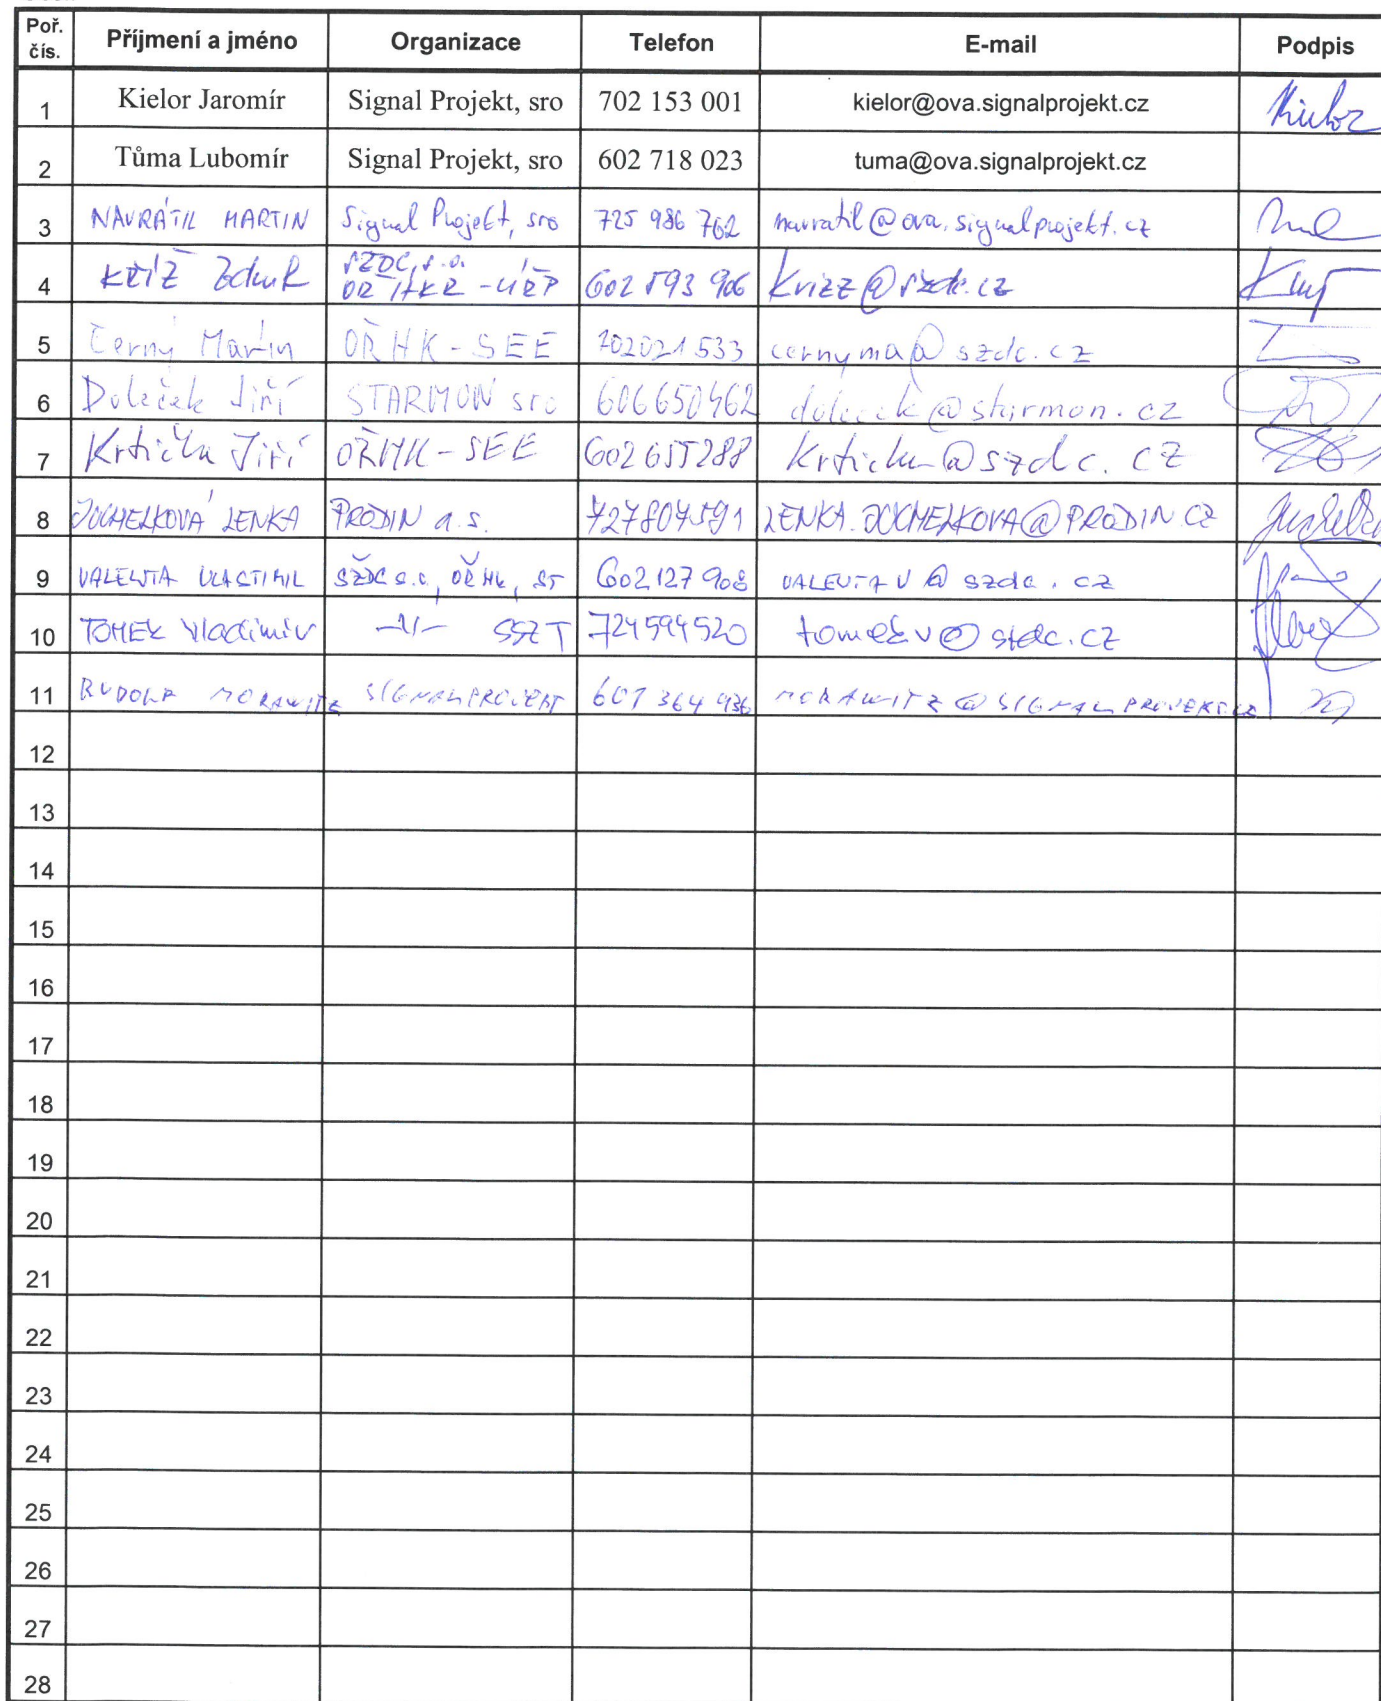 Poř. čís. Příjmení a jméno Organizace Telefon E-mail Podpis
1 Kielor Jaromír Signal Projekt, sro 702 153 001 kielor@ova.signalprojekt.cz
2 Tůma Lubomír Signal Projekt, sro 602 718 023 tuma@ova.signalprojekt.cz
3 NAVRÁTIL MARTIN Signal Projekt, sro 725 986 762 navratil@ova.signalprojekt.cz
4 KŘÍŽ SŽDC, s.o. 602 593 906 Krizz@szdc.cz
5 Černý Martin OŘ HK - SEE 702021533 cernyma@szdc.cz
6 Doleček Jiří STARMON sro 606650462 dolecek@starmon.cz
7 Krtička Jiří OŘ HK - SEE 602655288 Krticka@szdc.cz
8 JUCHELKOVÁ LENKA PRODIN a.s. 727807591 LENKA.JUCHELKOVA@PRODIN.CZ
9 VALENTA VLASTIMIL SŽDC s.o., OŘ HK, ST 602127908 VALENTAV@szdc.cz
10 TOMEK Vladimír -//- SSZT 724594520 tomekv@szdc.cz
11 RUDOLF MORAWITZ SIGNALPROJEKT 601 364 936 MORAWITZ@SIGNALPROJEKT.CZ
12
13
14
15
16
17
18
19
20
21
22
23
24
25
26
27
28